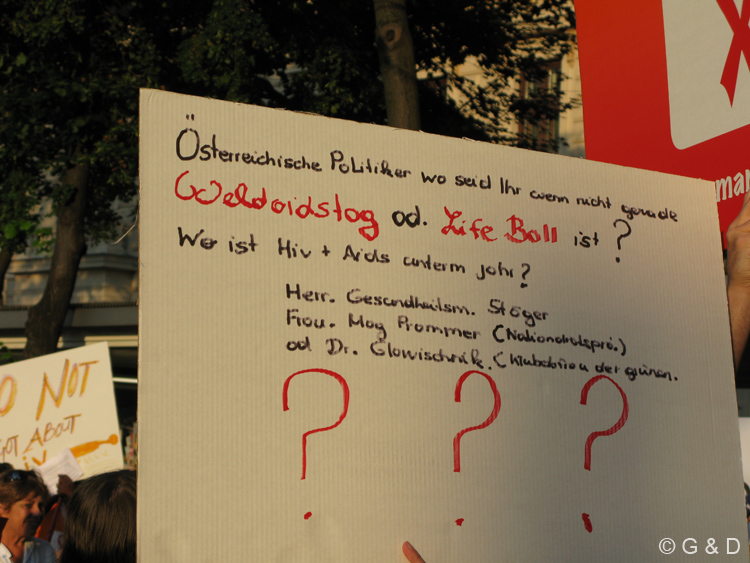 Österreichische Politiker wo seid Ihr wenn nicht gerade
Weldaidstag od. Life Ball ist ?
Wo ist Hiv + Aids unterm johr?
Herr. Gesundheitsm. Stöger
Frau. Mag Prammer (Nationalratsprä.)
od Dr. Glawischnik. (Klubobfrau der grünen.
? ? ?
NOT
ABOUT
mar
© G & D